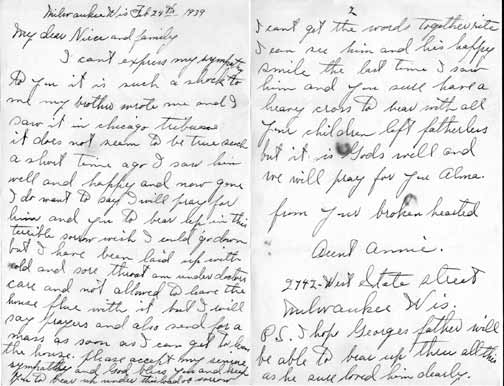 Milwaukee Wis Feb 24th 1939
My dear Niece and family
I cant express my sympathy
to you it is such a shock to
me my brother wrote me and I
saw it in chicago tribune
it does not seem to be true such
a short time ago I saw him
well and happy and now gone
I do want to say I will pray for
him and you to bear up in this
terrible sorrow wish I could go down
but I have been laid up with
cold and sore throat am under doctors
care and not allowed to leave the
house flue with it but I will
say prayers and also send for a
mass as soon as I can get to leave
the house. please accept my sincere
sympathy and God bless you and help
you to bear up under this load of sorrow
2
I cant get the words together rite
I can see him and his happy
smile the last time I saw
him and you sure have a
heavy cross to bear with all
your children left fatherless
but it is Gods will and
we will pray for you Alma.
from your broken hearted
Aunt Annie.
2742-West State street
Milwaukee Wis.
P.S. I hope Georges father will
be able to bear up then all this
as he sure loved him dearly.